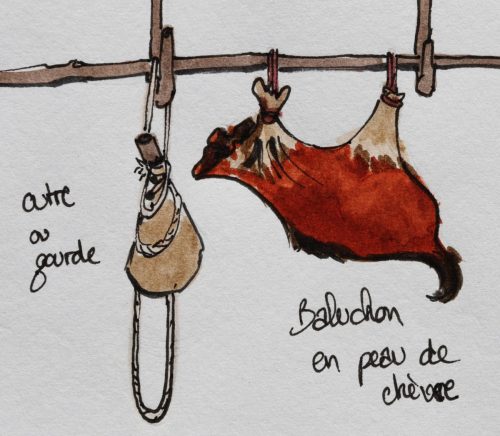 outre
ou
gourde
Baluchon
en peau de
chèvre